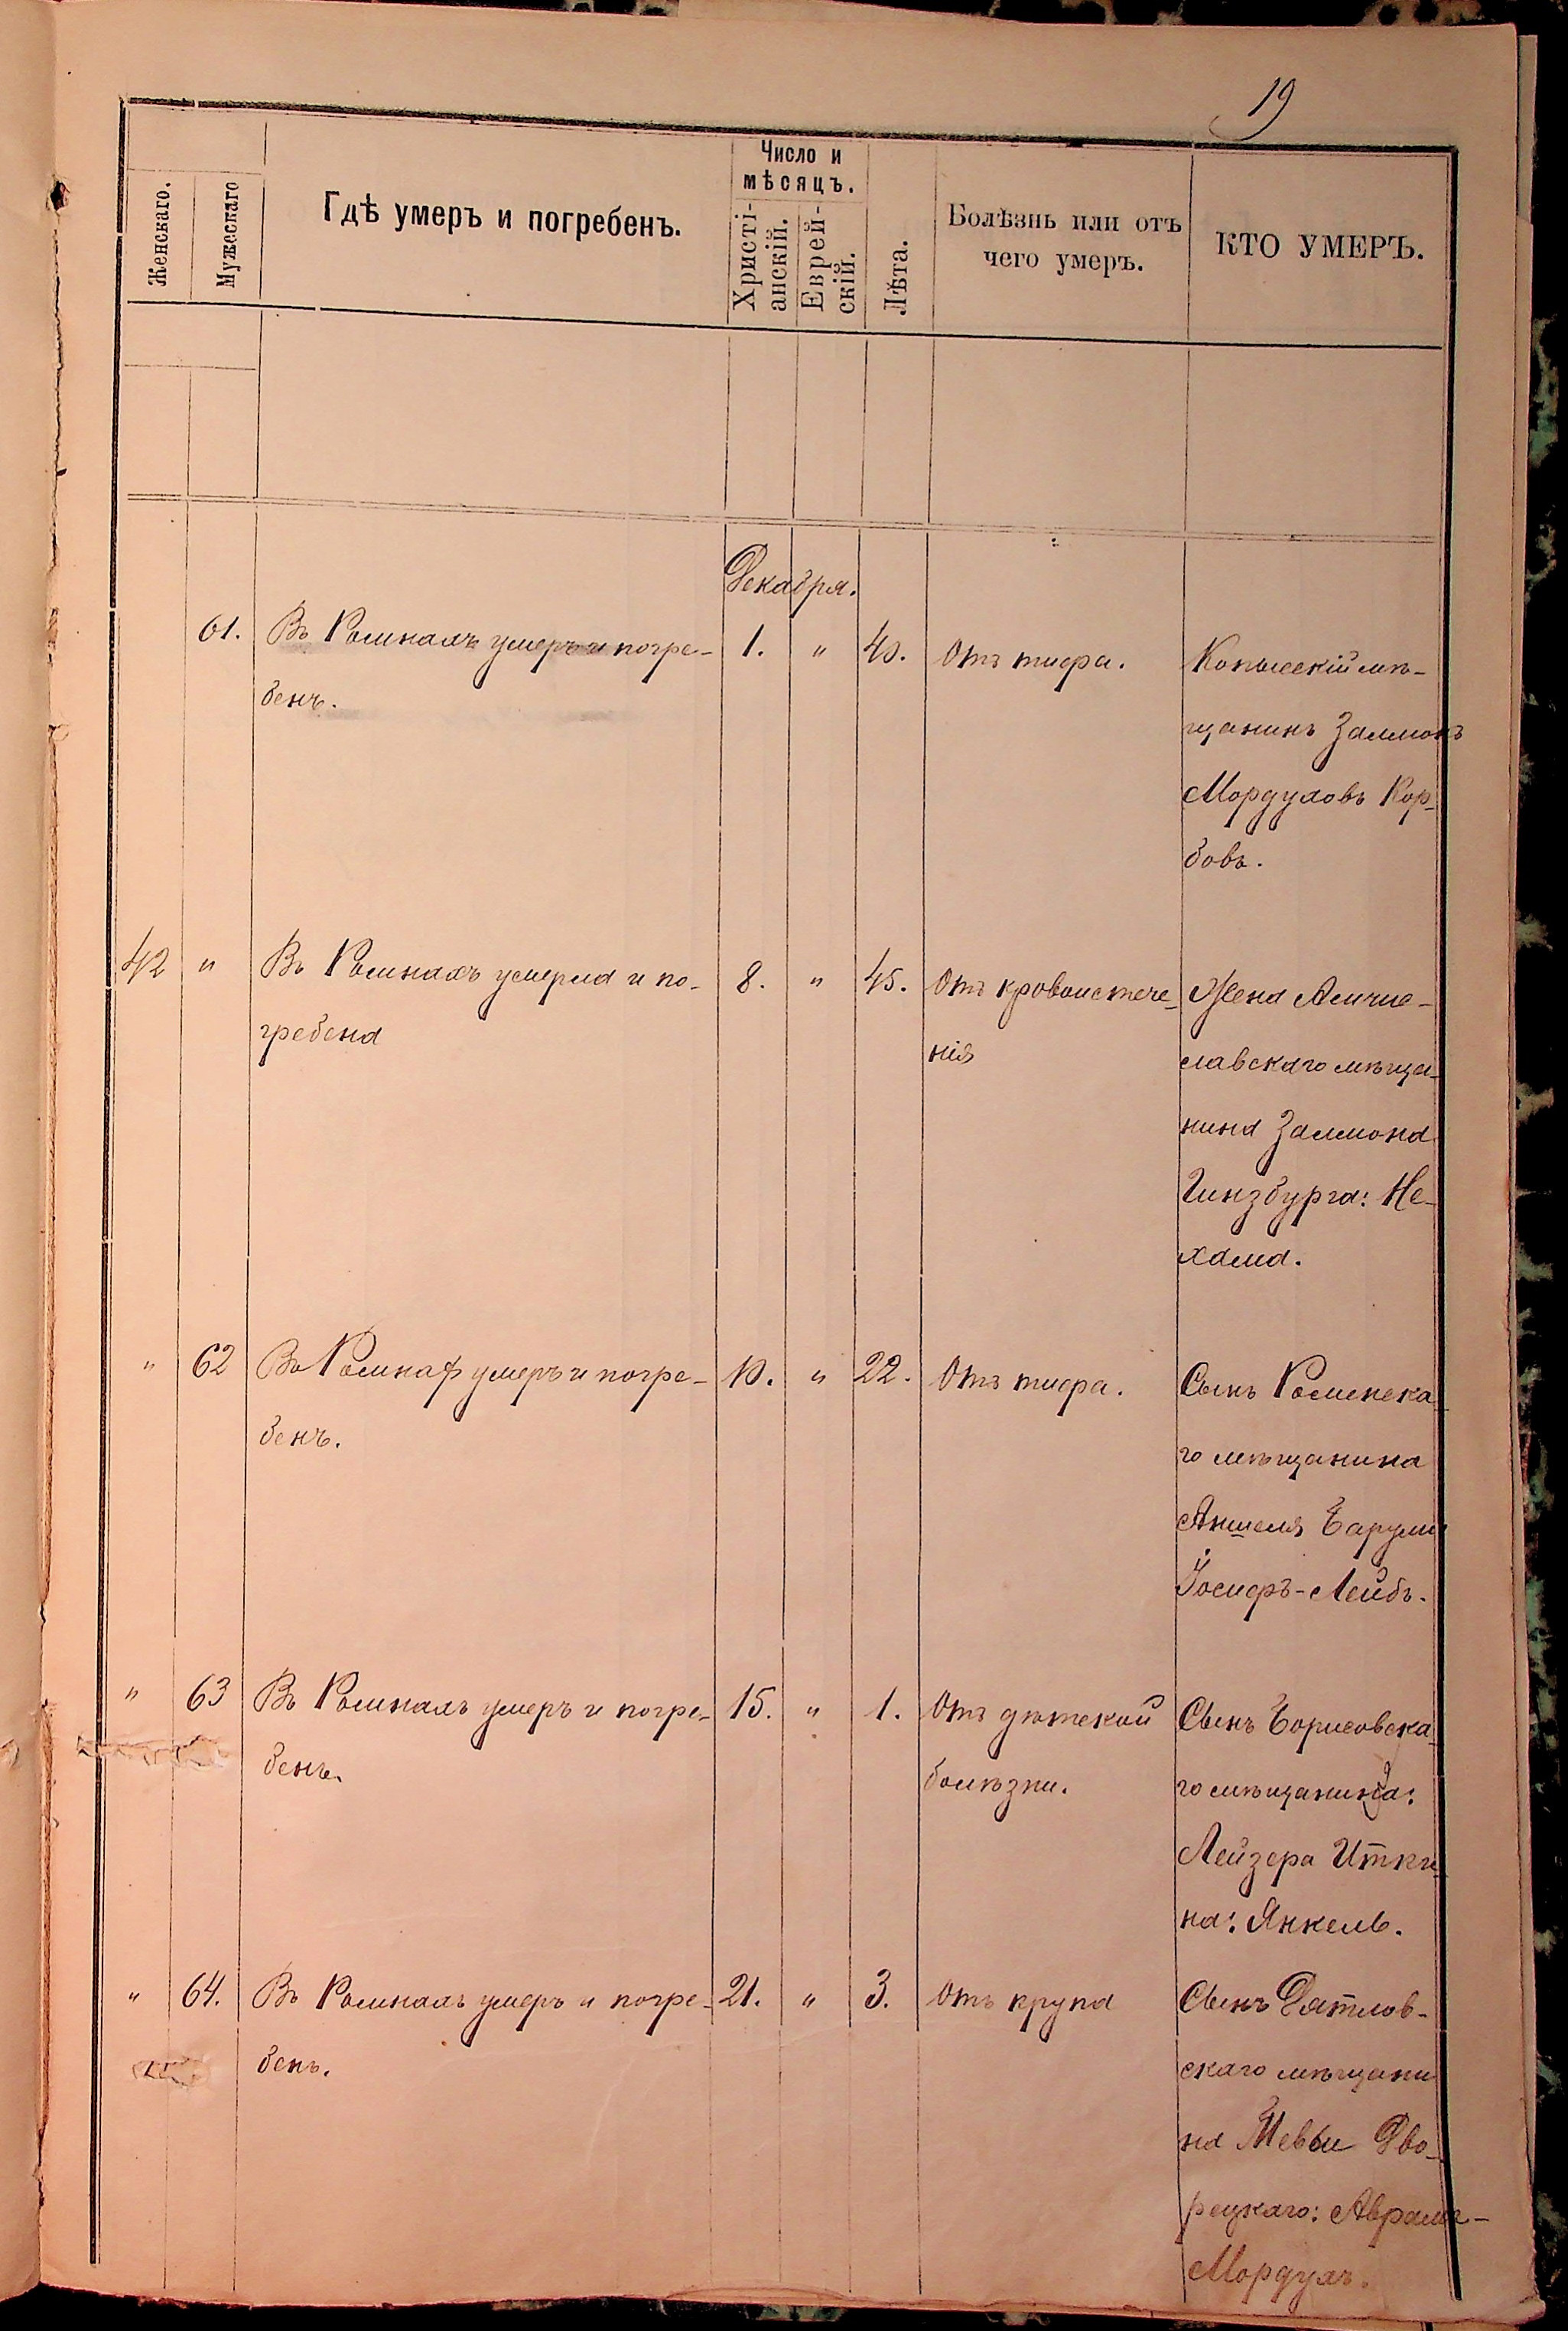 19
Женскаго.
Мужескаго
Гдѣ умеръ и погребенъ.
Число и
мѣсяцъ.
Христі-
анскій.
Еврей-
скій.
Лѣта.
Болѣзнь или отъ
чего умеръ.
КТО УМЕРЪ.
Декабря.
61. Въ Ромнахъ умеръ и погре- 1. " 40. Отъ тифа. Копысскій мѣ-
бенъ.
щанинъ Залмонъ
Мордуховъ Кор-
бовъ.
42 " Въ Ромнахъ умерла и по- 8. " 45. Отъ кровоистече- Жена Амчис-
гребена
нія
славскаго мѣща-
нина Залмона
Гинзбурга: Не-
хама.
" 62 Въ Ромнах умеръ и погре- 10. " 22. Отъ тифа. Сынъ Роменска-
бенъ.
го мѣщанина
Аншеля
Іосифъ-Лейбъ.
" 63 Въ Ромнахъ умеръ и погре- 15. " 1. Отъ дѣтской Сынъ Борисовска-
бенъ.
болѣзни.
го мѣщанина:
Лейзера Итки-
на: Янкель.
" 64. Въ Ромнахъ умеръ и погре- 21. " 3. Отъ крупа Сынъ Дятлов-
бенъ.
скаго мѣщани
на Шевы Дво-
рецкаго: Аврамъ-
Мордухъ.